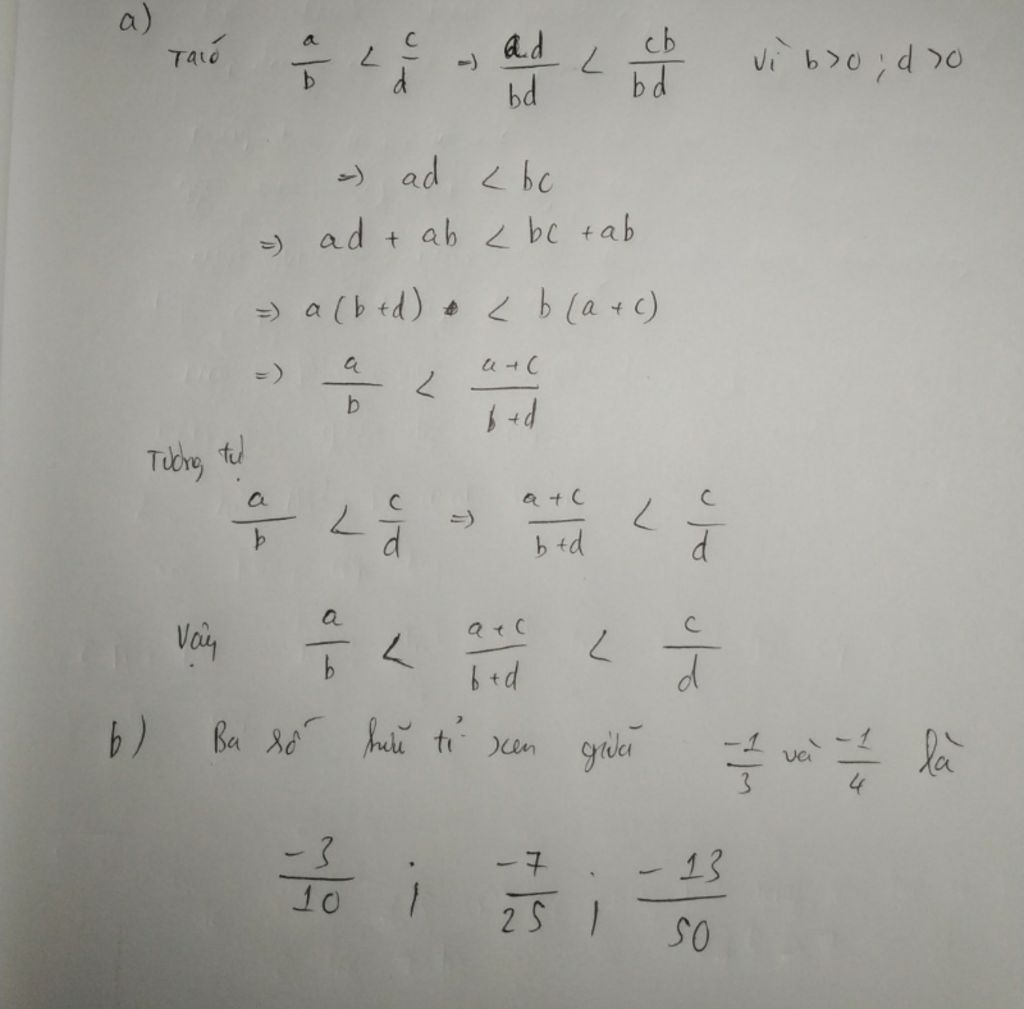 a)
Ta có a/b < c/d => ad/bd < cb/bd vì b>0 ; d>0
=> ad < bc
=> ad + ab < bc + ab
=> a(b+d) < b(a+c)
=> a/b < a+c/b+d
Tương tự
a/b < c/d => a+c/b+d < c/d
Vậy a/b < a+c/b+d < c/d
b) Ba số hữu tỉ xen giữa -1/3 và -1/4 là
-3/10 ; -7/25 ; -13/50